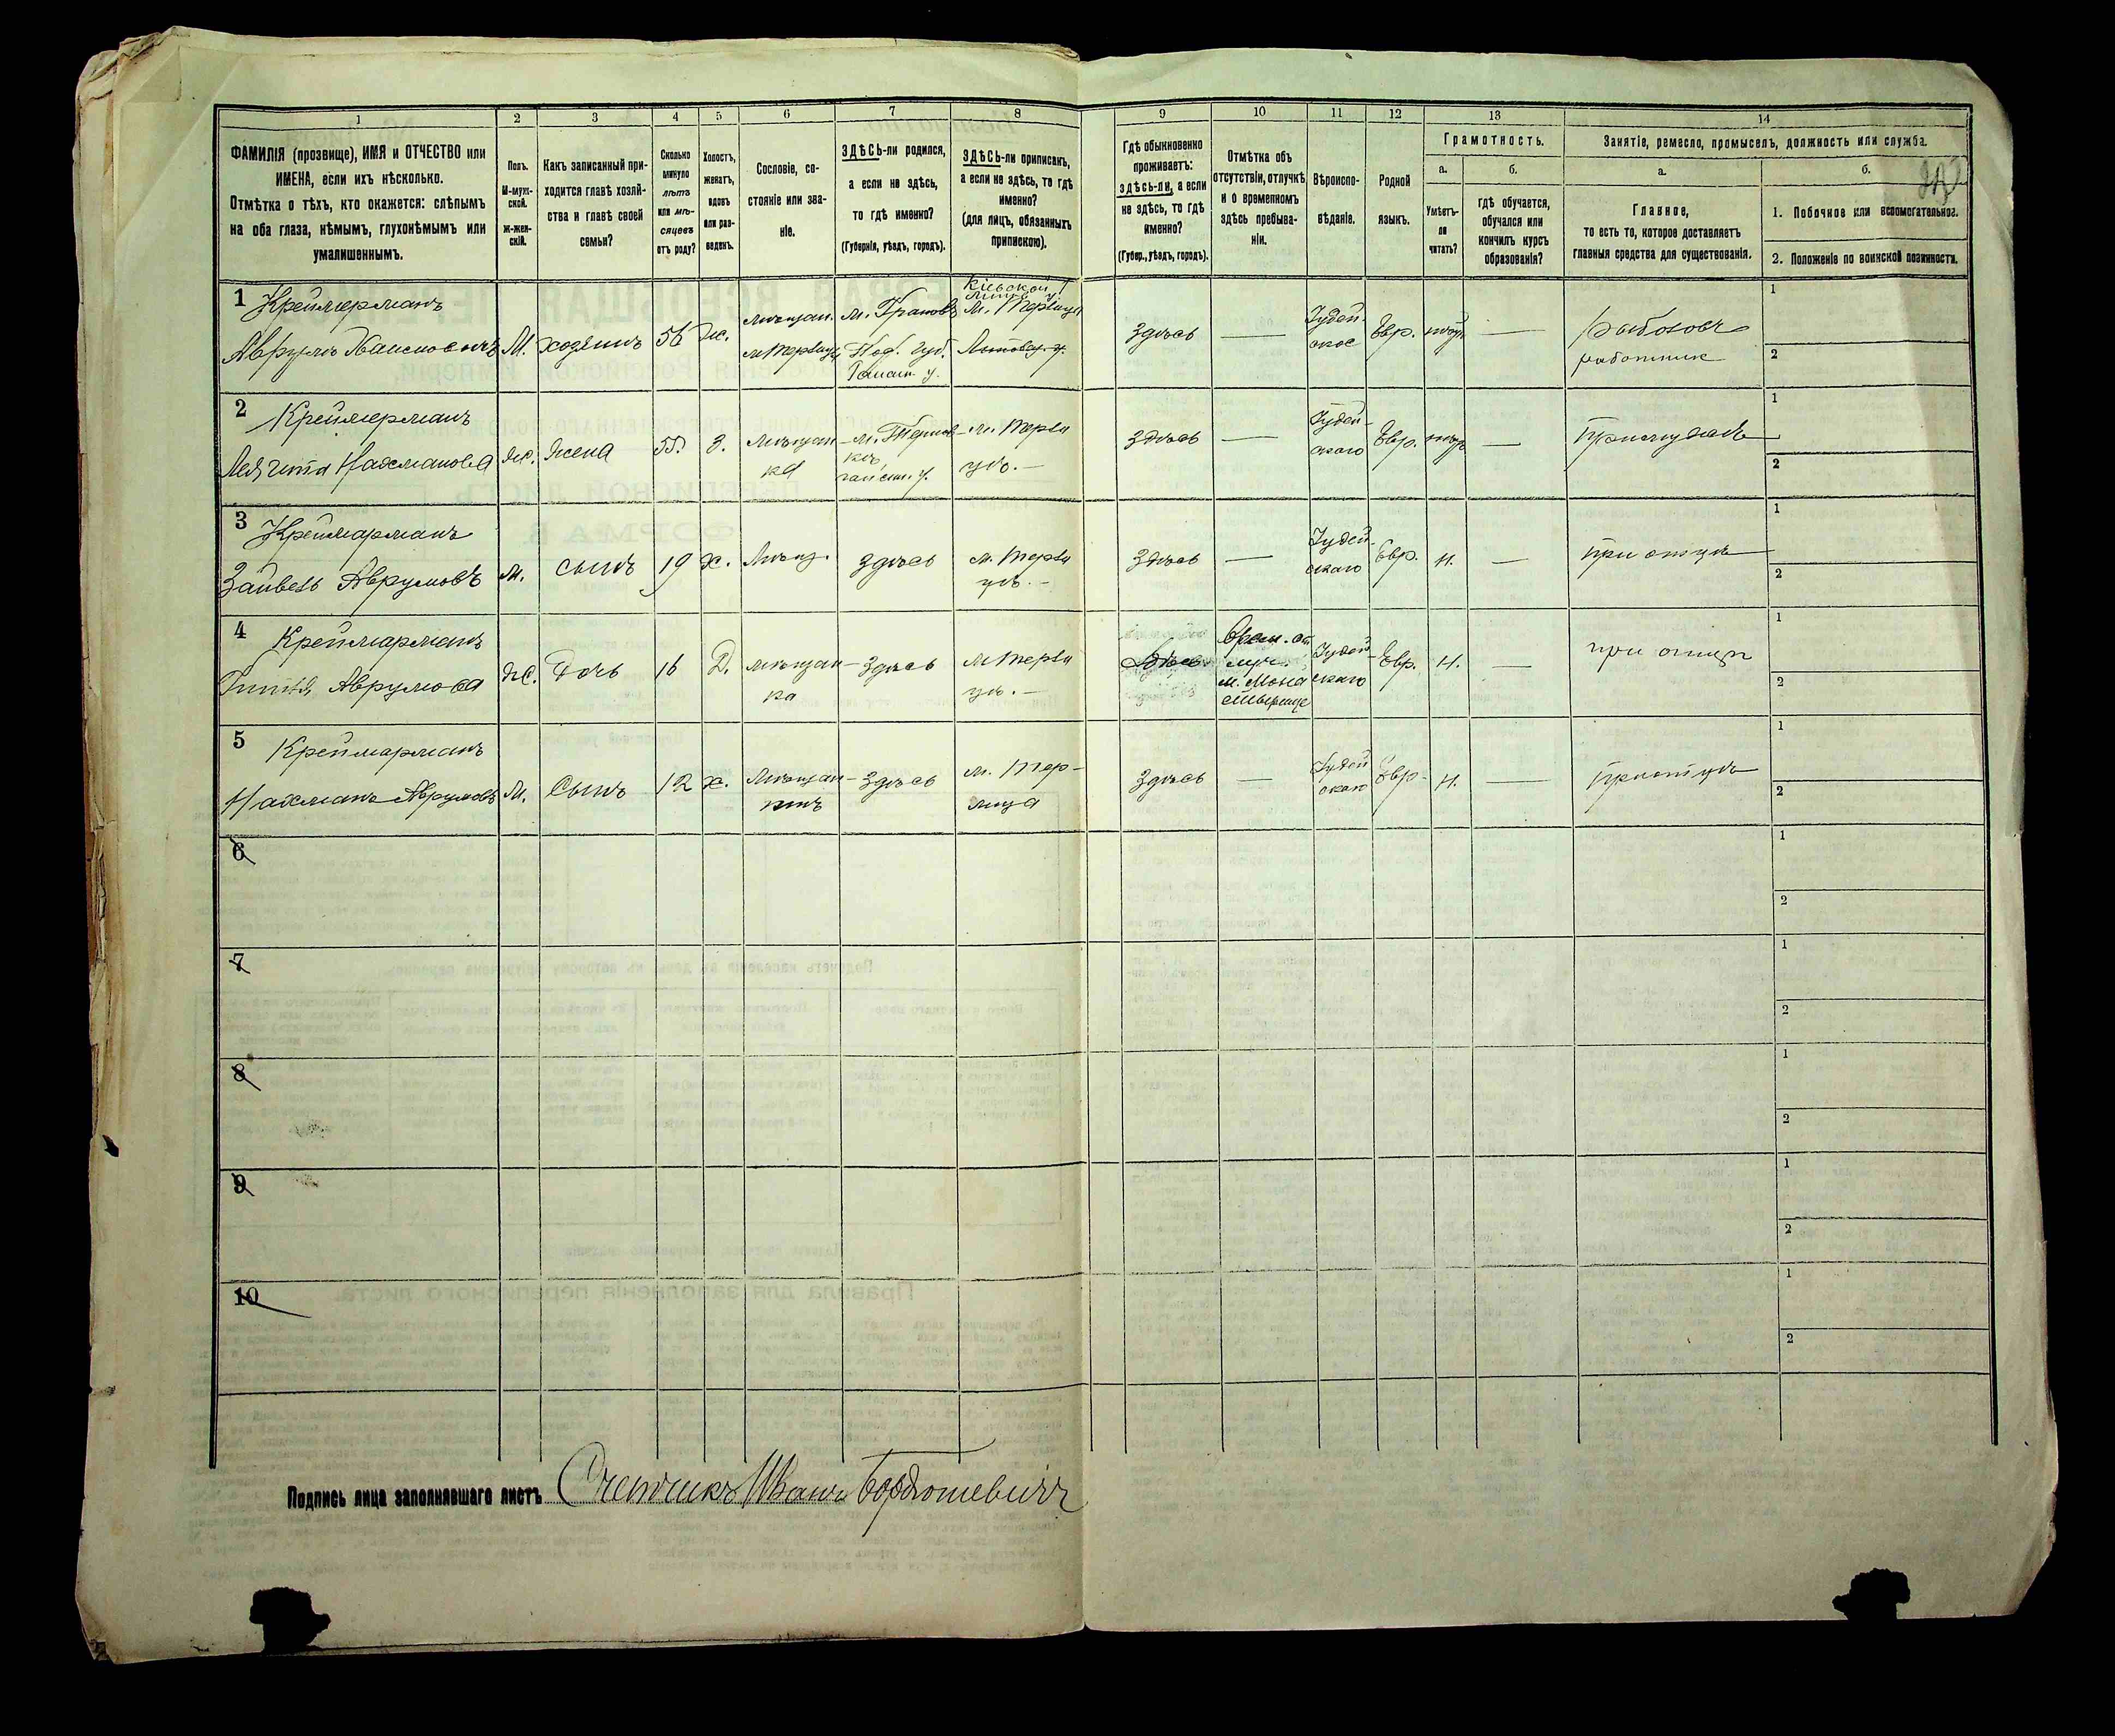 1 2 3 4 5 6 7 8 9 10 11 12 13 14
ФАМИЛІЯ (прозвище), ИМЯ и ОТЧЕСТВО или
ИМЕНА, если ихъ нѣсколько.
Отмѣтка о тѣхъ, кто окажется: слѣпымъ
на оба глаза, нѣмымъ, глухонѣмымъ или
умалишеннымъ.
Полъ.
М-муж-
ской.
Ж-жен-
скій.
Какъ записанный при-
ходится главѣ хозяй-
ства и главѣ своей
семьи?
Сколько
минуло
лѣтъ
или мѣ-
сяцевъ
отъ роду?
Холостъ,
женатъ,
вдовъ
или раз-
веденъ.
Сословіе, со-
стояніе или зва-
ніе.
ЗДѢСЬ-ли родился,
а если не здѣсь,
то гдѣ именно?
(Губернія, уѣздъ, городъ).
ЗДѢСЬ-ли приписанъ,
а если не здѣсь, то гдѣ
именно?
(для лицъ, обязанныхъ
припискою).
Гдѣ обыкновенно
проживаетъ:
здѣсь-ли, а если
не здѣсь, то гдѣ
именно?
(Губер., уѣздъ, городъ).
Отмѣтка объ
отсутствіи, отлучкѣ
и о временномъ
здѣсь пребыва-
ніи.
Вѣроиспо-
вѣданіе.
Родной
языкъ.
Грамотность.
а.
Умѣетъ-
ли
читать?
б.
гдѣ обучается,
обучался или
кончилъ курсъ
образованія?
Занятіе, ремесло, промыселъ, должность или служба.
а.
Главное,
то есть то, которое доставляетъ
главныя средства для существованія.
б.
1. Побочное или вспомогательное.
2. Положеніе по воинской повинности.
1 Креймерманъ
Аврумъ М. хозяинъ 56 ж.
мѣщан.
м. Грановъ
Под. Губ.
Гайсин. у.
Кіевской г.
Липов. у.
м. Терлица
здѣсь — Іудей-
ское Евр. —
рыболовъ
работник
1
2
2 Креймерманъ
Нахманова жс. жена 55. З. мѣщан-
ка
гайсин. у.
м. Терли
цѣ. —
здѣсь — Іудей-
скаго Евр. —
1
2
3 Креймарманъ
Зайвель Аврумовъ м. сынъ 19 х. Мѣщ. здѣсь м. Терли
цѣ. —
здѣсь — Іудей-
скаго Евр. н. — при отцѣ
1
2
4 Креймарманъ
Гитля Аврумова ж. Дочь 16 Д. мѣщан-
ка здѣсь м Терли
цѣ. —
Врем. от
луч.
м. Мона
стырище
Іудей
скаго Евр. н. — при отцѣ
1
2
5 Креймарманъ
Нахманъ Аврумовъ М. Сынъ 12 х. Мѣщан-
инъ здѣсь м. Тер-
лица
здѣсь — Іудей
скаго Евр. н. — при отцѣ
1
2
6
1
2
7
1
2
8
1
2
9
1
2
10
1
2
Подпись лица заполнявшаго листъ Счетчикъ Иванъ